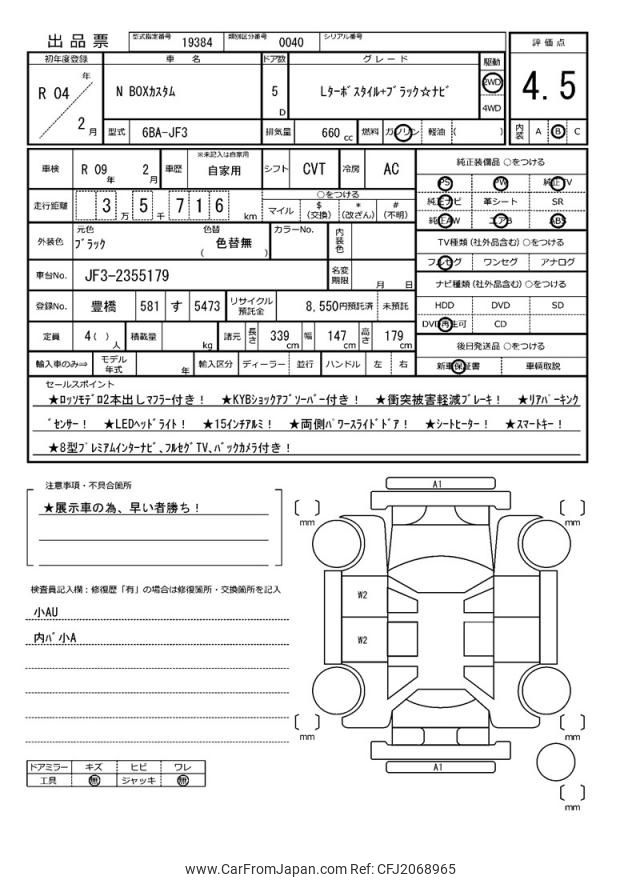 出品票 型式指定番号 19384 類別区分番号 0040 シリアル番号
評価点
初年度登録 車名 ドア数 グレード 駆動
R 04 年 2 月 N BOXカスタム 5 D Lターボスタイル+ブラック☆ナビ 2WD 4WD
4.5
型式 6BA-JF3 排気量 660 cc 燃料 ガソリン 軽油 ( )
内装 A B C
車検 R 09 年 2 月 車歴 ※未記入は自家用 自家用 シフト CVT 冷房 AC
純正装備品 ○をつける
PS PW 純正TV
純正ナビ 革シート SR
純正AW エアB ABS
走行距離 3 万 5 千 7 1 6 km
○をつける
マイル $ (交換) * (改ざん) # (不明)
外装色 元色 ブラック 色替 ( 色替無 ) カラーNo. 内装色
TV種類 (社外品含む) ○をつける
フルセグ ワンセグ アナログ
車台No. JF3-2355179 名変期限 月 日
ナビ種類 (社外品含む) ○をつける
HDD DVD SD
DVD再生可 CD
登録No. 豊橋 581 す 5473 リサイクル預託金 8,550円預託済 未預託
定員 4 ( ) 人 積載量 kg 諸元 長さ 339 cm 幅 147 cm 高さ 179 cm
後日発送品 ○をつける
新車保証書 車輌取説
輸入車のみ⇒ モデル年式 年 輸入区分 ディーラー ・ 並行 ハンドル 左 ・ 右
セールスポイント
★ロッソモデロ2本出しマフラー付き! ★KYBショックアブソーバー付き! ★衝突被害軽減ブレーキ! ★リアパーキング
ゼンサー! ★LEDヘッドライト! ★15インチアルミ! ★両側パワースライドドア! ★シートヒーター! ★スマートキー!
★8型プレミアムインターナビ、フルセグTV、バックカメラ付き!
注意事項・不具合箇所
★展示車の為、早い者勝ち!
検査員記入欄:修復歴「有」の場合は修復箇所・交換箇所を記入
小AU
内バ小A
A1
mm mm
W2
W2
mm mm
A1
mm
ドアミラー キズ ヒビ ワレ
工具 無 ジャッキ 無
www.CarFromJapan.com Ref: CFJ2068965